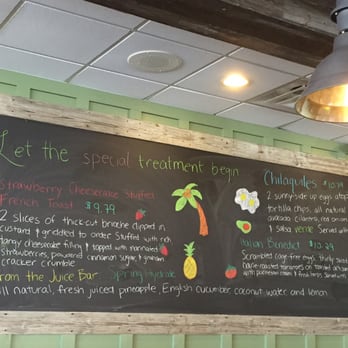 Let the special treatment begin
Strawberry Cheesecake Stuffed
French Toast $9.79
2 slices of thick-cut brioche dipped in
custard & griddled to order. Stuffed with rich
tangy cheesecake filling & topped with marinated
strawberries, powdered cinnamon sugar, & graham
cracker crumble
From the Juice Bar Spring Hydrate
All natural, fresh juiced pineapple, English cucumber, coconut water, and lemon
Chilaquiles $10.
2 sunny-side up eggs atop
tortilla chips, all natural
avocado, cilantro, red onion
& salsa verde. Served
Italian Benedict $10.29
Scrambled cage-free eggs,
house-roasted tomatoes on toasted
with & fresh